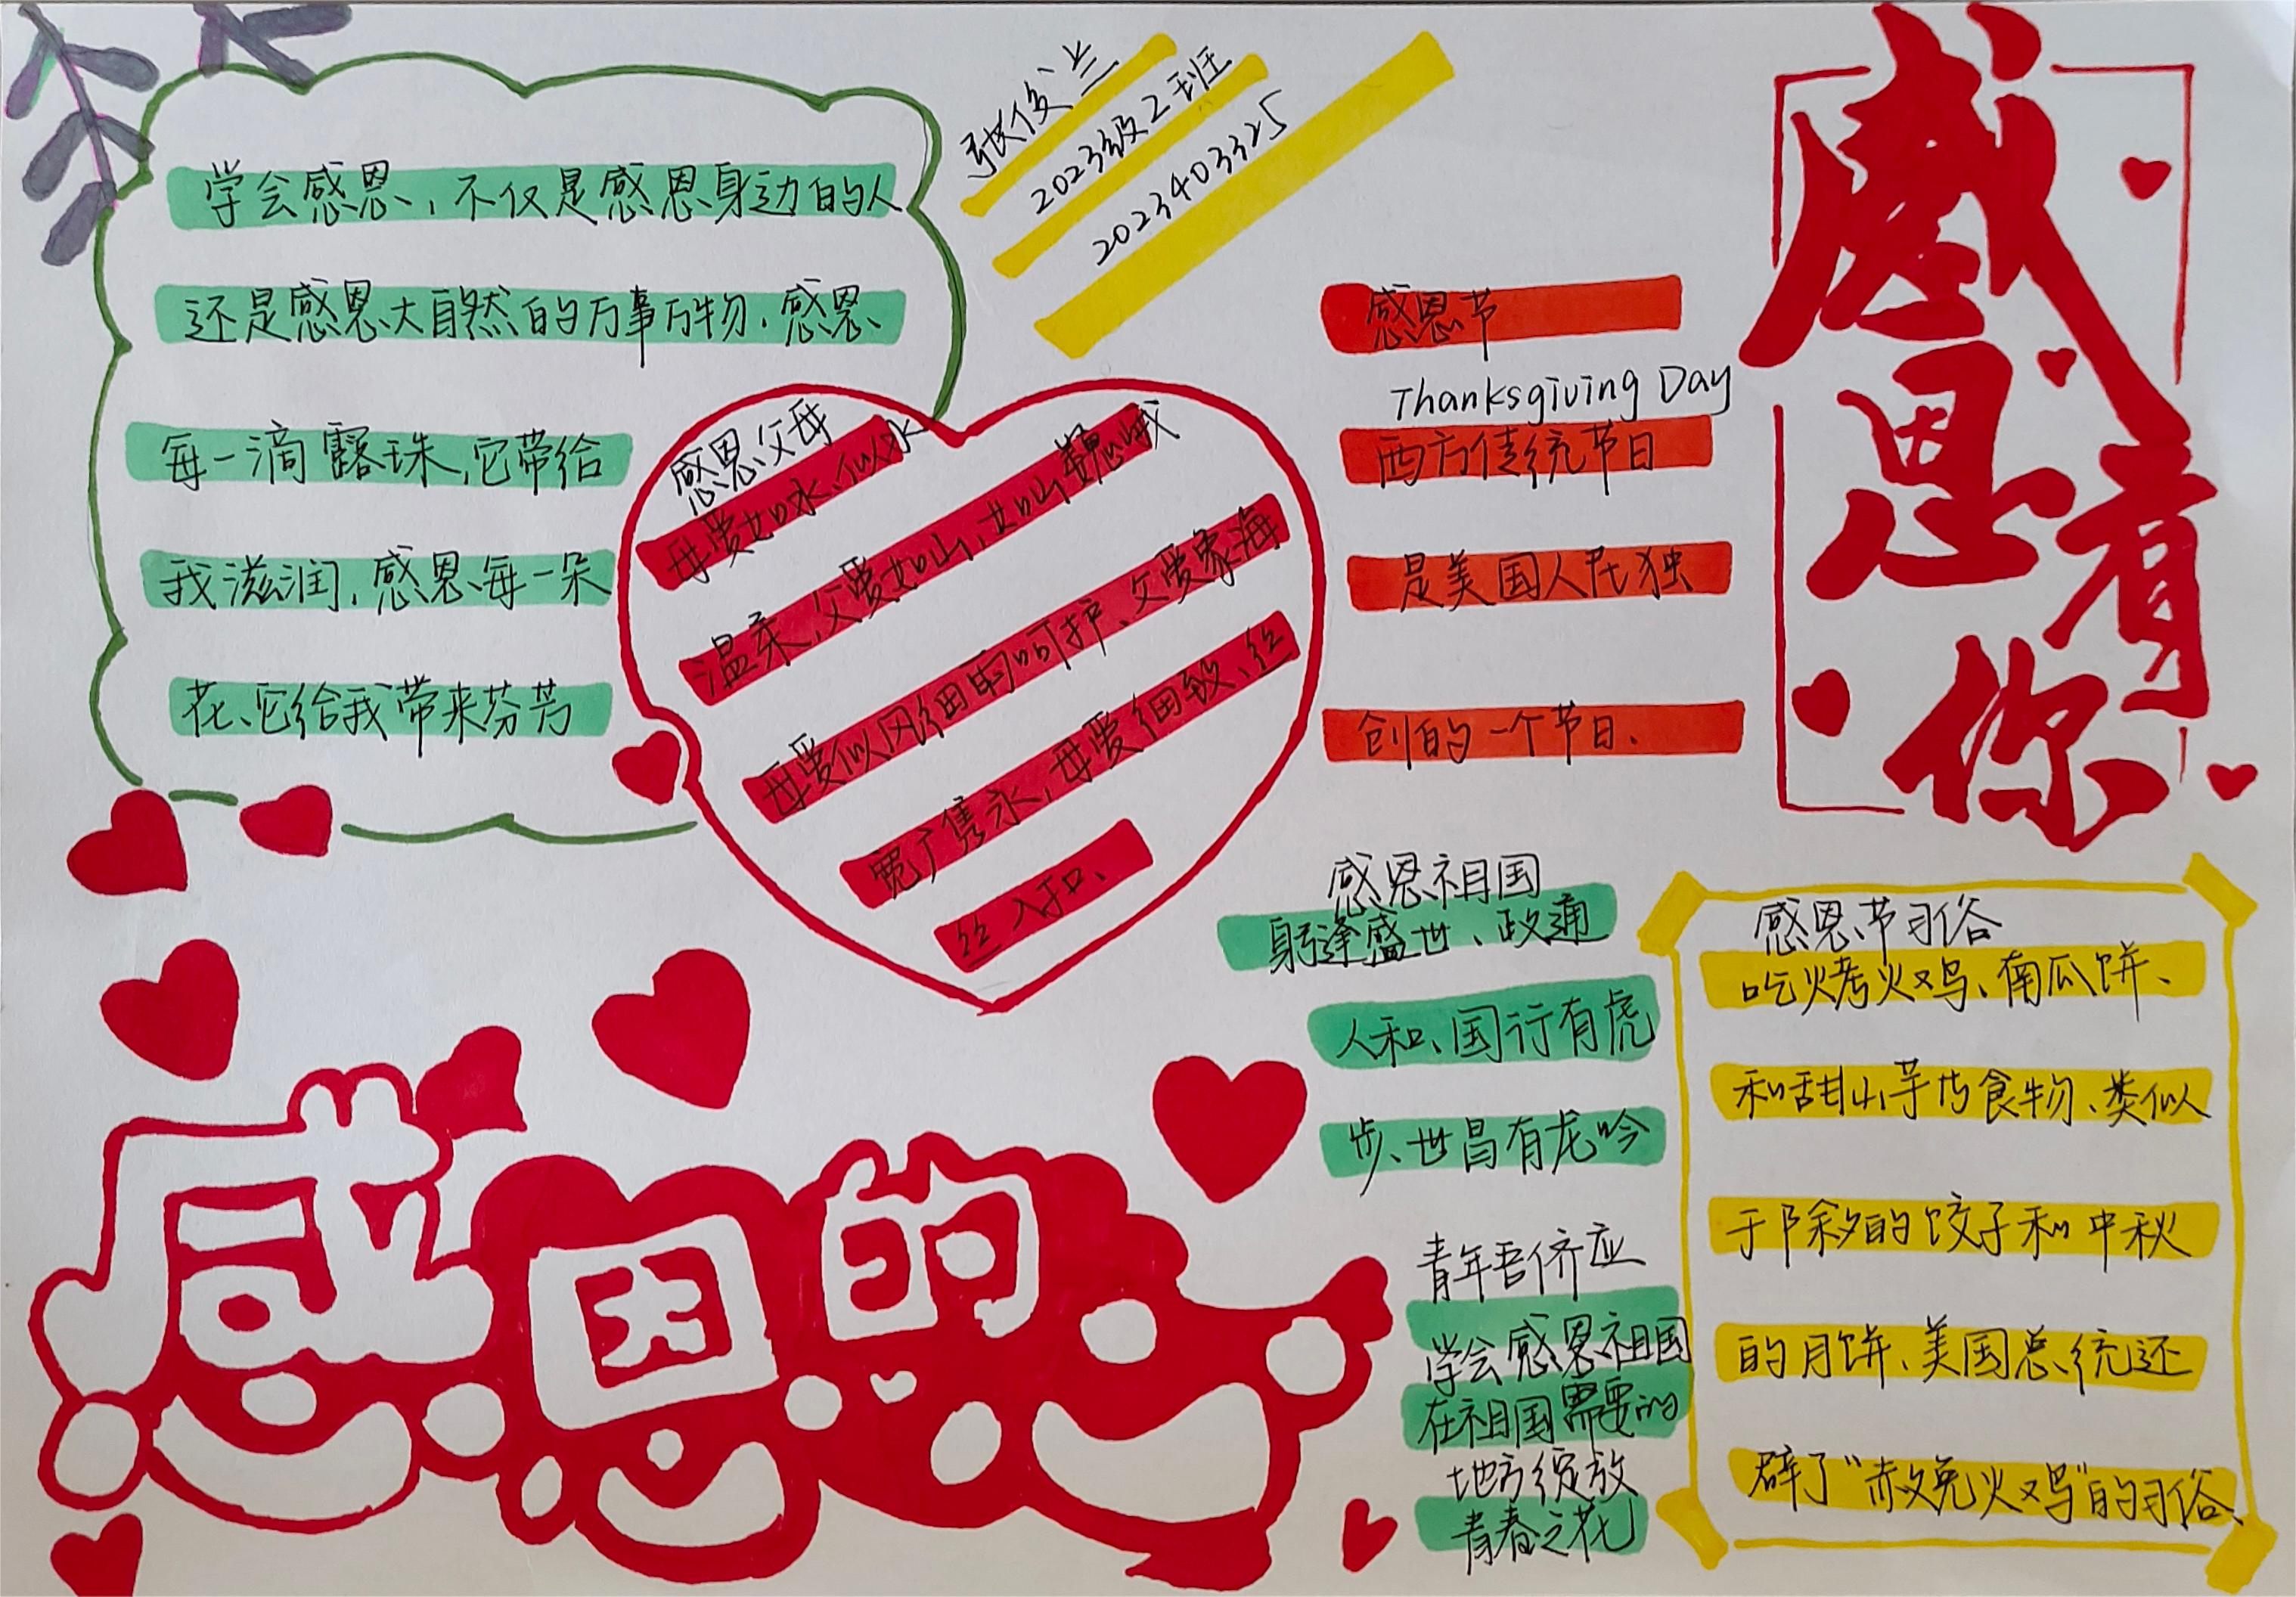 学会感恩，不仅是感恩身边的人
还是感恩大自然的万事万物、感恩
每一滴露珠，它带给
我滋润，感恩每一朵
花、它给我带来芬芳
张俊兰
2023级2班
2023403325
感恩父母
母爱如水、似水
温柔，父爱如山，如山巍峨
母爱似风细雨呵护、父爱象海
宽广隽永，母爱细致、丝
丝入扣、
感恩节
Thanksgiving Day
西方传统节日
是美国人民独
创的一个节日、
感恩有你
感恩祖国
躬逢盛世、政通
人和、国行有虎
步、世昌有龙吟
青年吾侪应
学会感恩祖国
在祖国需要的
地方绽放
青春之花
感恩节习俗
吃烤火鸡、南瓜饼、
和甜山芋的食物、类似
于除夕的饺子和中秋
的月饼、美国总统还
辟了“赦免火鸡”的习俗、
感恩的心